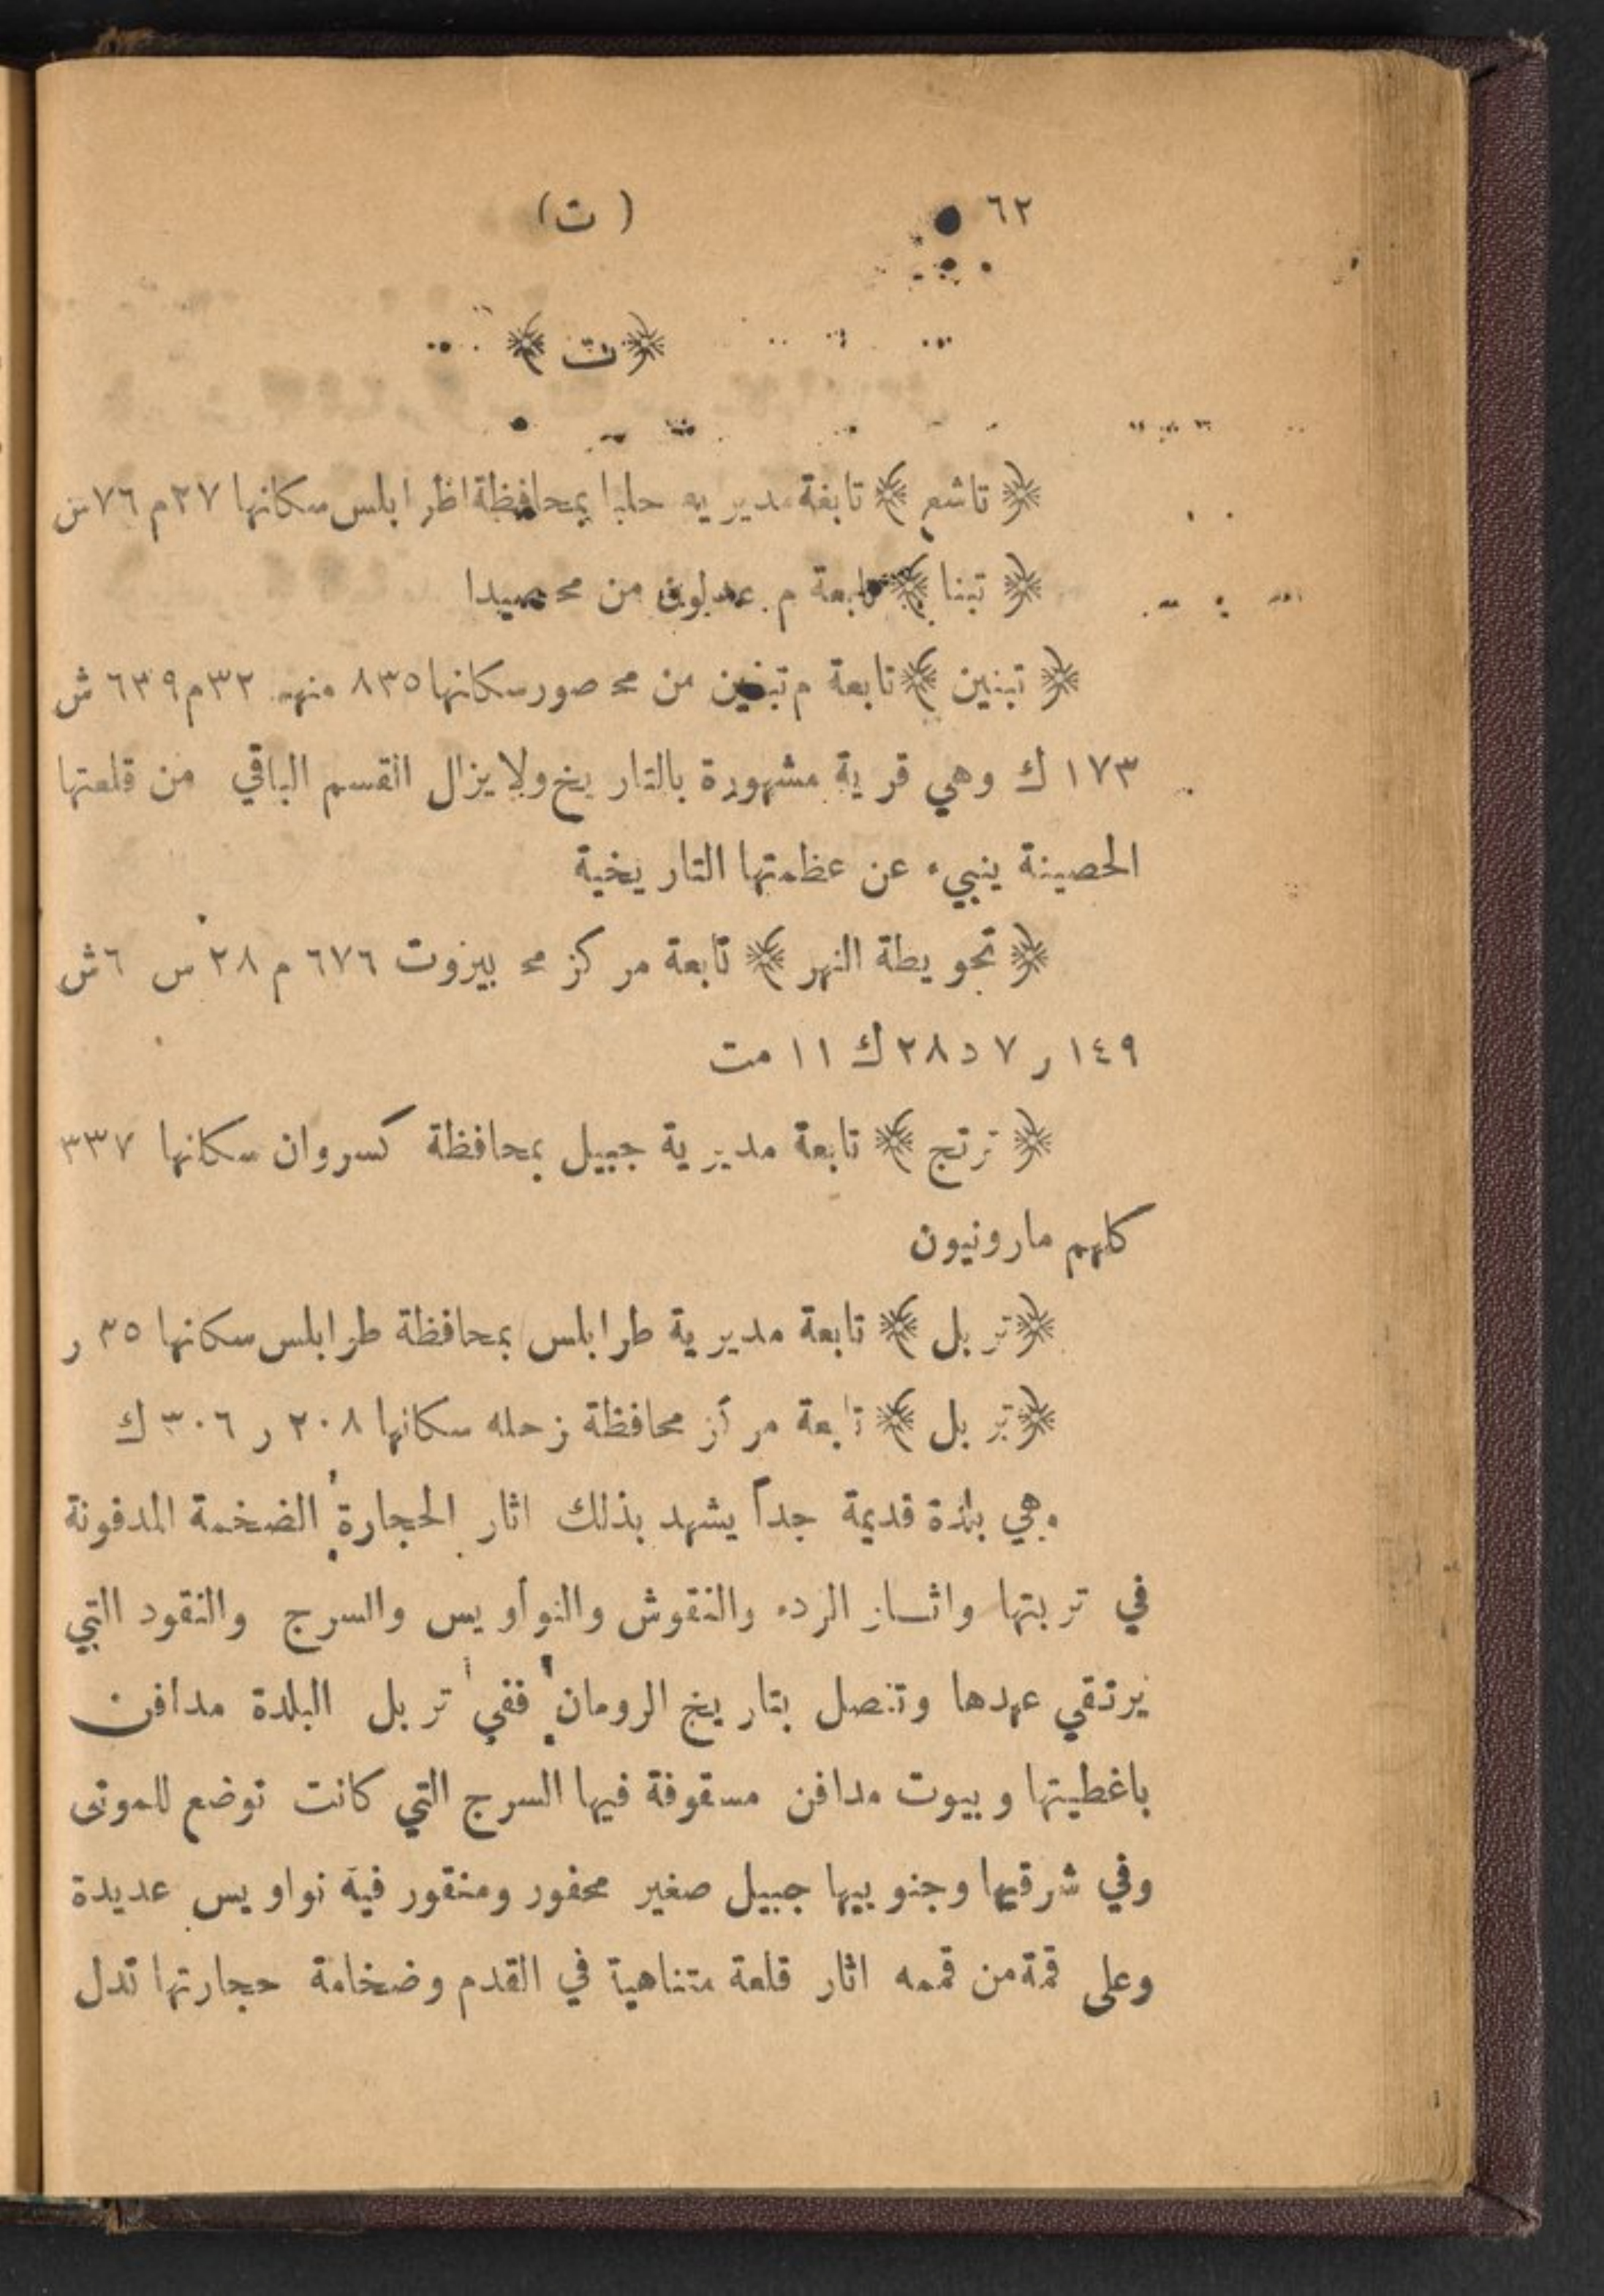 ٦٢ (ت)
﴿ت﴾
﴿ تاشع ﴾ تابعة مديرية حلبا بمحافظة اطرابلس سكانها ٢٧ م ٧٦ س
﴿ تبنا ﴾ تابعة م عدلون من مح صيدا
﴿ تبنين ﴾ تابعة م تبنين من مح صور سكانها ٨٣٥ منهم ٣٢ م ٦٣٩ ش
١٧٣ ك وهي قرية مشهورة بالتاريخ ولا يزال القسم الباقي من قلعتها
الحصينة ينبيء عن عظمتها التاريخية
﴿ تحويطة النهر ﴾ تابعة مركز مح بيروت ٦٧٦ م ٢٨ س ٦ ش
١٤٩ ر ٧ د ٢٨ ك ١١ مت
﴿ ترتج ﴾ تابعة مديرية جبيل بمحافظة كسروان سكانها ٣٣٧
كلهم مارونيون
﴿ تربل ﴾ تابعة مديرية طرابلس بمحافظة طرابلس سكانها ٣٥ ر
﴿ تربل ﴾ تابعة مركز محافظة زحله سكانها ٢٠٨ ر ٣٠٦ ك
وهي بلدة قديمة جداً يشهد بذلك اثار الحجارة الضخمة المدفونة
في تربتها واثار الردم والنقوش والنواويس والسرج والنقود التي
يرتقي عهدها وتتصل بتاريخ الرومان ففي تربل البلدة مدافن
باغطيتها وبيوت مدافن مسقوفة فيها السرج التي كانت توضع للموتى
وفي شرقيها وجنوبيها جبيل صغير محفور ومنقور فيه نواويس عديدة
وعلى قمة من قممه اثار قلعة متناهية في القدم وضخامة حجارتها تدل